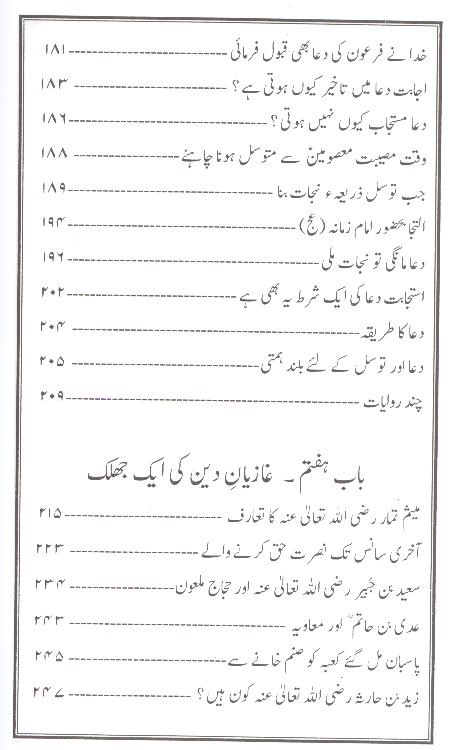 خدا نے فرعون کی دعا بھی قبول فرمائی ۱۸۱
اجابت دعا میں تاخیر کیوں ہوتی ہے؟ ۱۸۳
دعا مستجاب کیوں نہیں ہوتی؟ ۱۸۶
وقت مصیبت معصومینؑ سے متوسل ہونا چاہئے ۱۸۸
جب توسل ذریعہء نجات بنا ۱۸۹
التجا بحضور امام زمانہ (عج) ۱۹۴
دعا مانگی تو نجات ملی ۱۹۶
استجابت دعا کی ایک شرط یہ بھی ہے ۲۰۲
دعا کا طریقہ ۲۰۴
دعا اور توسل کے لئے بلند ہمتی ۲۰۵
چند روایات ۲۰۹
باب ہفتم ۔ غازیانِ دین کی ایک جھلک
میثم تمار رضی اللہ تعالیٰ عنہ کا تعارف ۲۱۵
آخری سانس تک نصرت حق کرنے والے ۲۲۳
سعید بن جُبیر رضی اللہ تعالیٰ عنہ اور حجاج ملعون ۲۳۴
عدی بن حاتمؓ اور معاویہ ۲۴۳
پاسبان مل گئے کعبہ کو صنم خانے سے ۲۴۵
زید بن حارثہ رضی اللہ تعالیٰ عنہ کون ہیں؟ ۲۴۷